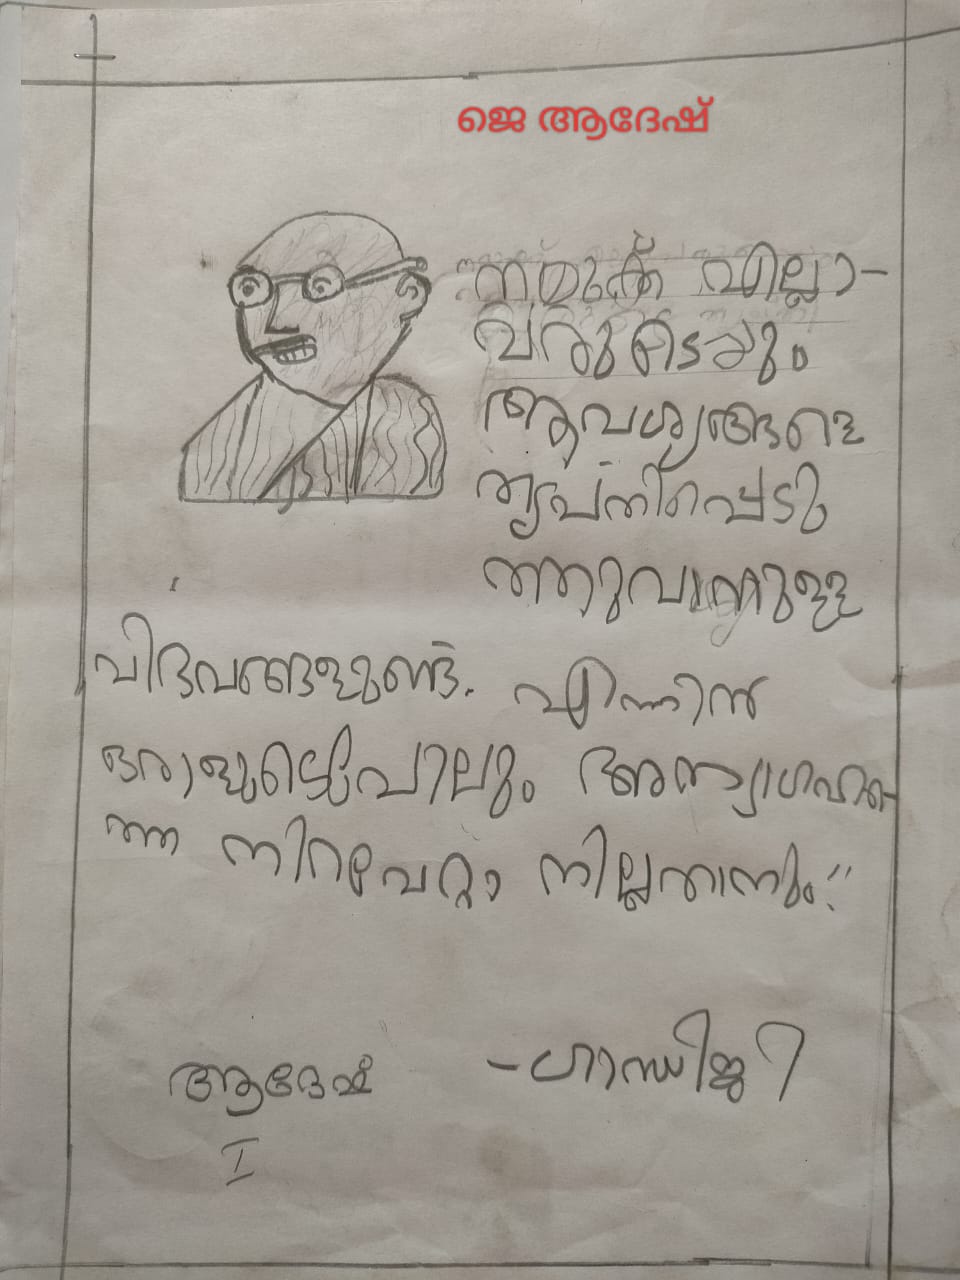 ജെ ആദേഷ്
നമുക്ക് എല്ലാ-
വരുടെയും
ആവശ്യങ്ങളെ
തൃപ്തിപ്പെടു
ത്തുവാനുള്ള
വിഭവങ്ങളുണ്ട്. എന്നാൽ
ഒരാളുടെപോലും അത്യാഗ്രഹ-
ത്തെ നിറവേറ്റാ നില്ലതാനും."
ആദേഷ് -ഗാന്ധിജി
I